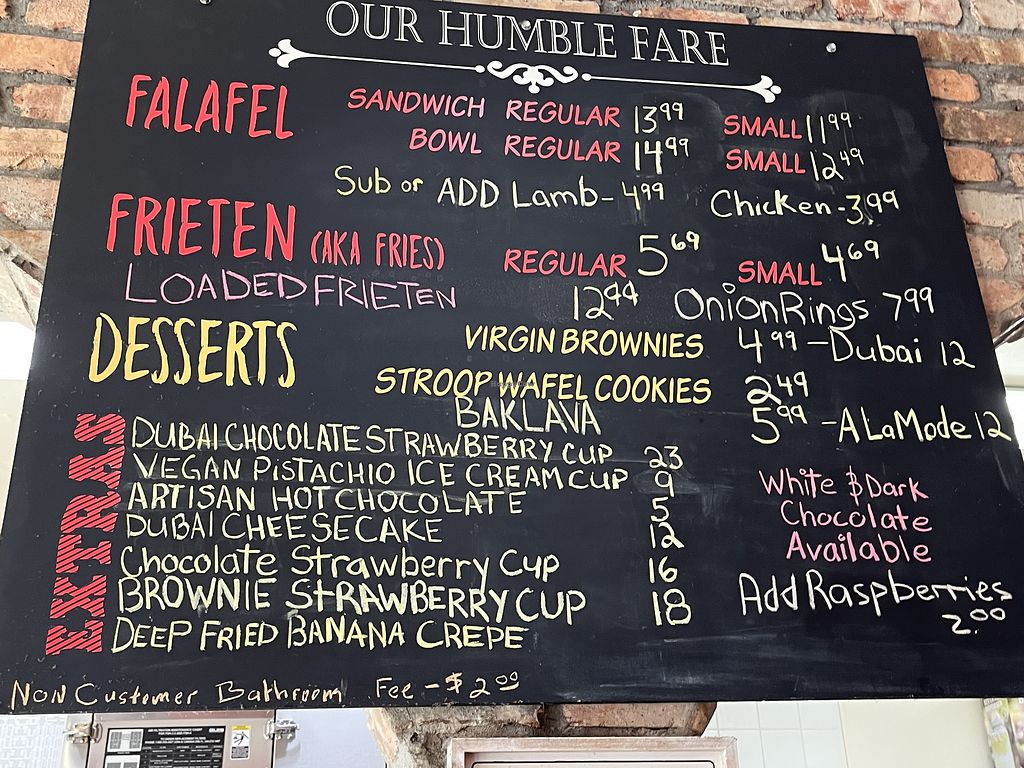 OUR HUMBLE FARE
FALAFEL SANDWICH REGULAR 13.99 SMALL 11.99
BOWL REGULAR 14.99 SMALL 12.49
Sub or ADD Lamb - 4.99 Chicken - 3.99
FRIETEN (AKA FRIES) REGULAR 5.69 SMALL 4.69
LOADED FRIETEN 12.99 Onion Rings 7.99
DESSERTS VIRGIN BROWNIES 4.99 - Dubai 12
STROOP WAFEL COOKIES 2.49
BAKLAVA 5.99 - A La Mode 12
EXTRAS
DUBAI CHOCOLATE STRAWBERRY CUP 23
VEGAN PISTACHIO ICE CREAM CUP 9
ARTISAN HOT CHOCOLATE 5
DUBAI CHEESECAKE 12
Chocolate Strawberry Cup 16
BROWNIE STRAWBERRY CUP 18
DEEP FRIED BANANA CREPE
White & Dark
Chocolate
Available
Add Raspberries
2.00
Non Customer Bathroom Fee - $2.00